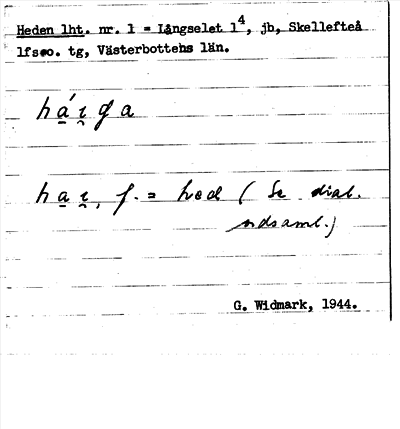 Heden lht. nr. 1 = Långselet 1⁴, jb, Skellefteå
lfs o. tg, Västerbottens län.
há̱i̯ga
ha̱i̯, f. = hed ( Se dial.
ordsaml.)
G. Widmark, 1944.